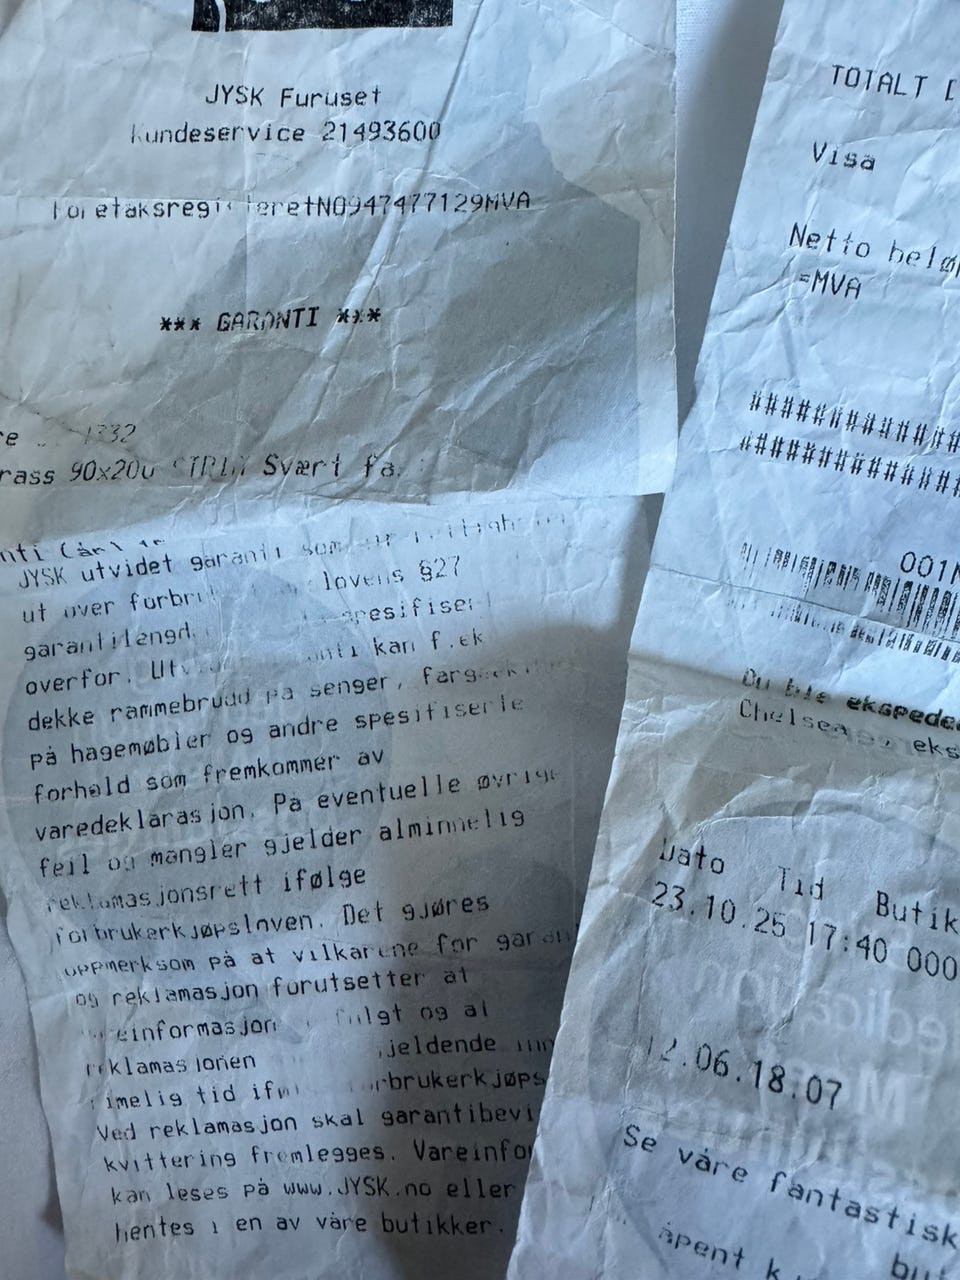 JYSK Furuset
Kundeservice 21493600
ForetaksregisteretNO947477129MVA
*** GARANTI ***
1332
90x200 Svært fa
JYSK utvidet garanti som
ut over lovens §27
garantilengd
overfor. kan f.ek
dekke rammebrudd på senger,
på hagemøbler og andre spesifiserte
forhold som fremkommer av
varedeklarasjon. På eventuelle øvrige
feil og mangler gjelder alminnelig
reklamasjonsrett ifølge
forbrukerkjøpsloven. Det gjøres
oppmerksom på at vilkårene for garan
og reklamasjon forutsetter at
vareinformasjon og at
reklamasjonen gjeldende
rimelig tid
Ved reklamasjon skal garantibevi
kvittering fremlegges. Vareinfo
kan leses på www.JYSK.no eller
hentes i en av våre butikker.
TOTALT
Visa
Netto belø
=MVA
############
#############
001
Du ble ekspede
Chelsea eks
Dato Tid Butik
23.10.25 17:40 000
12.06.18:07
Se våre fantastisk
åpent k
bu